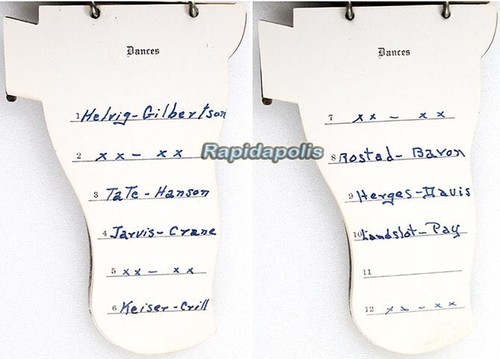 Dances
1 Helvig-Gilbertson
2 xx - xx
3 Tate-Hanson
4 Jarvis-Crane
5 xx - xx
6 Keiser-Crill
Dances
7 xx - xx
8 Rostad-Baron
9 Herges-Davis
10 Landslot-Pay
11
12 xx - xx
Rapidapolis